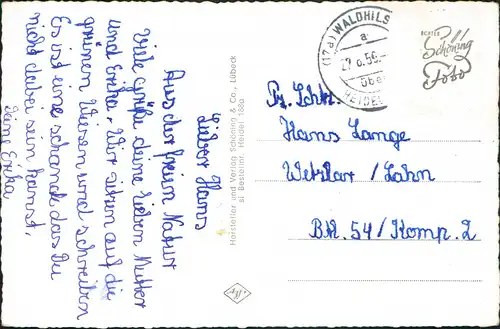 Lieber Hans
Aus der freien Natur
viele Grüße deine lieben Mutter
und Erika. Wir sitzen auf die
grünen Wiesen und schreiben
Es ist eine schande das Du
nicht dabei sein kannst.
Deine Erika
Hersteller und Verlag Schöning & Co., Lübeck
si Bestellnr. Heidel 188a
(17a) WALDHILS
a
27.6.56
über
HEIDEL
ECHTES
Schöning
Foto
Hans Lange
Wetzlar / Lahn
Btl. 54 / Komp. 2